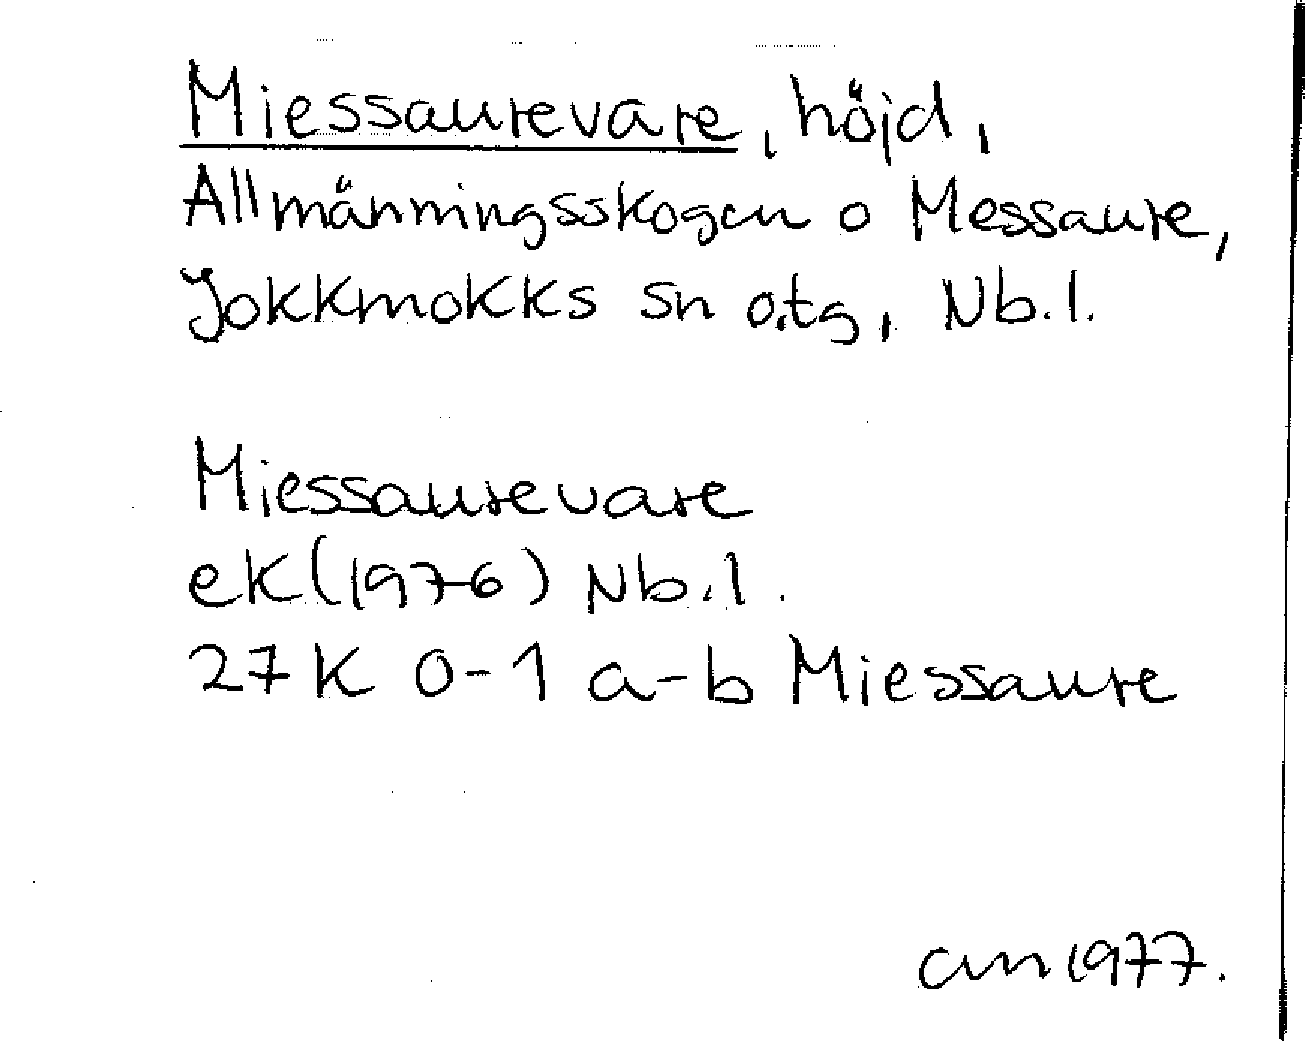 Miessaurevare, höjd,
Allmänningsskogen o Messaure,
Jokkmokks sn o.tg, Nb.l.
Miessaurevare
ek (1976) Nb.l.
27K 0-1 a-b Miessaure
am 1977.